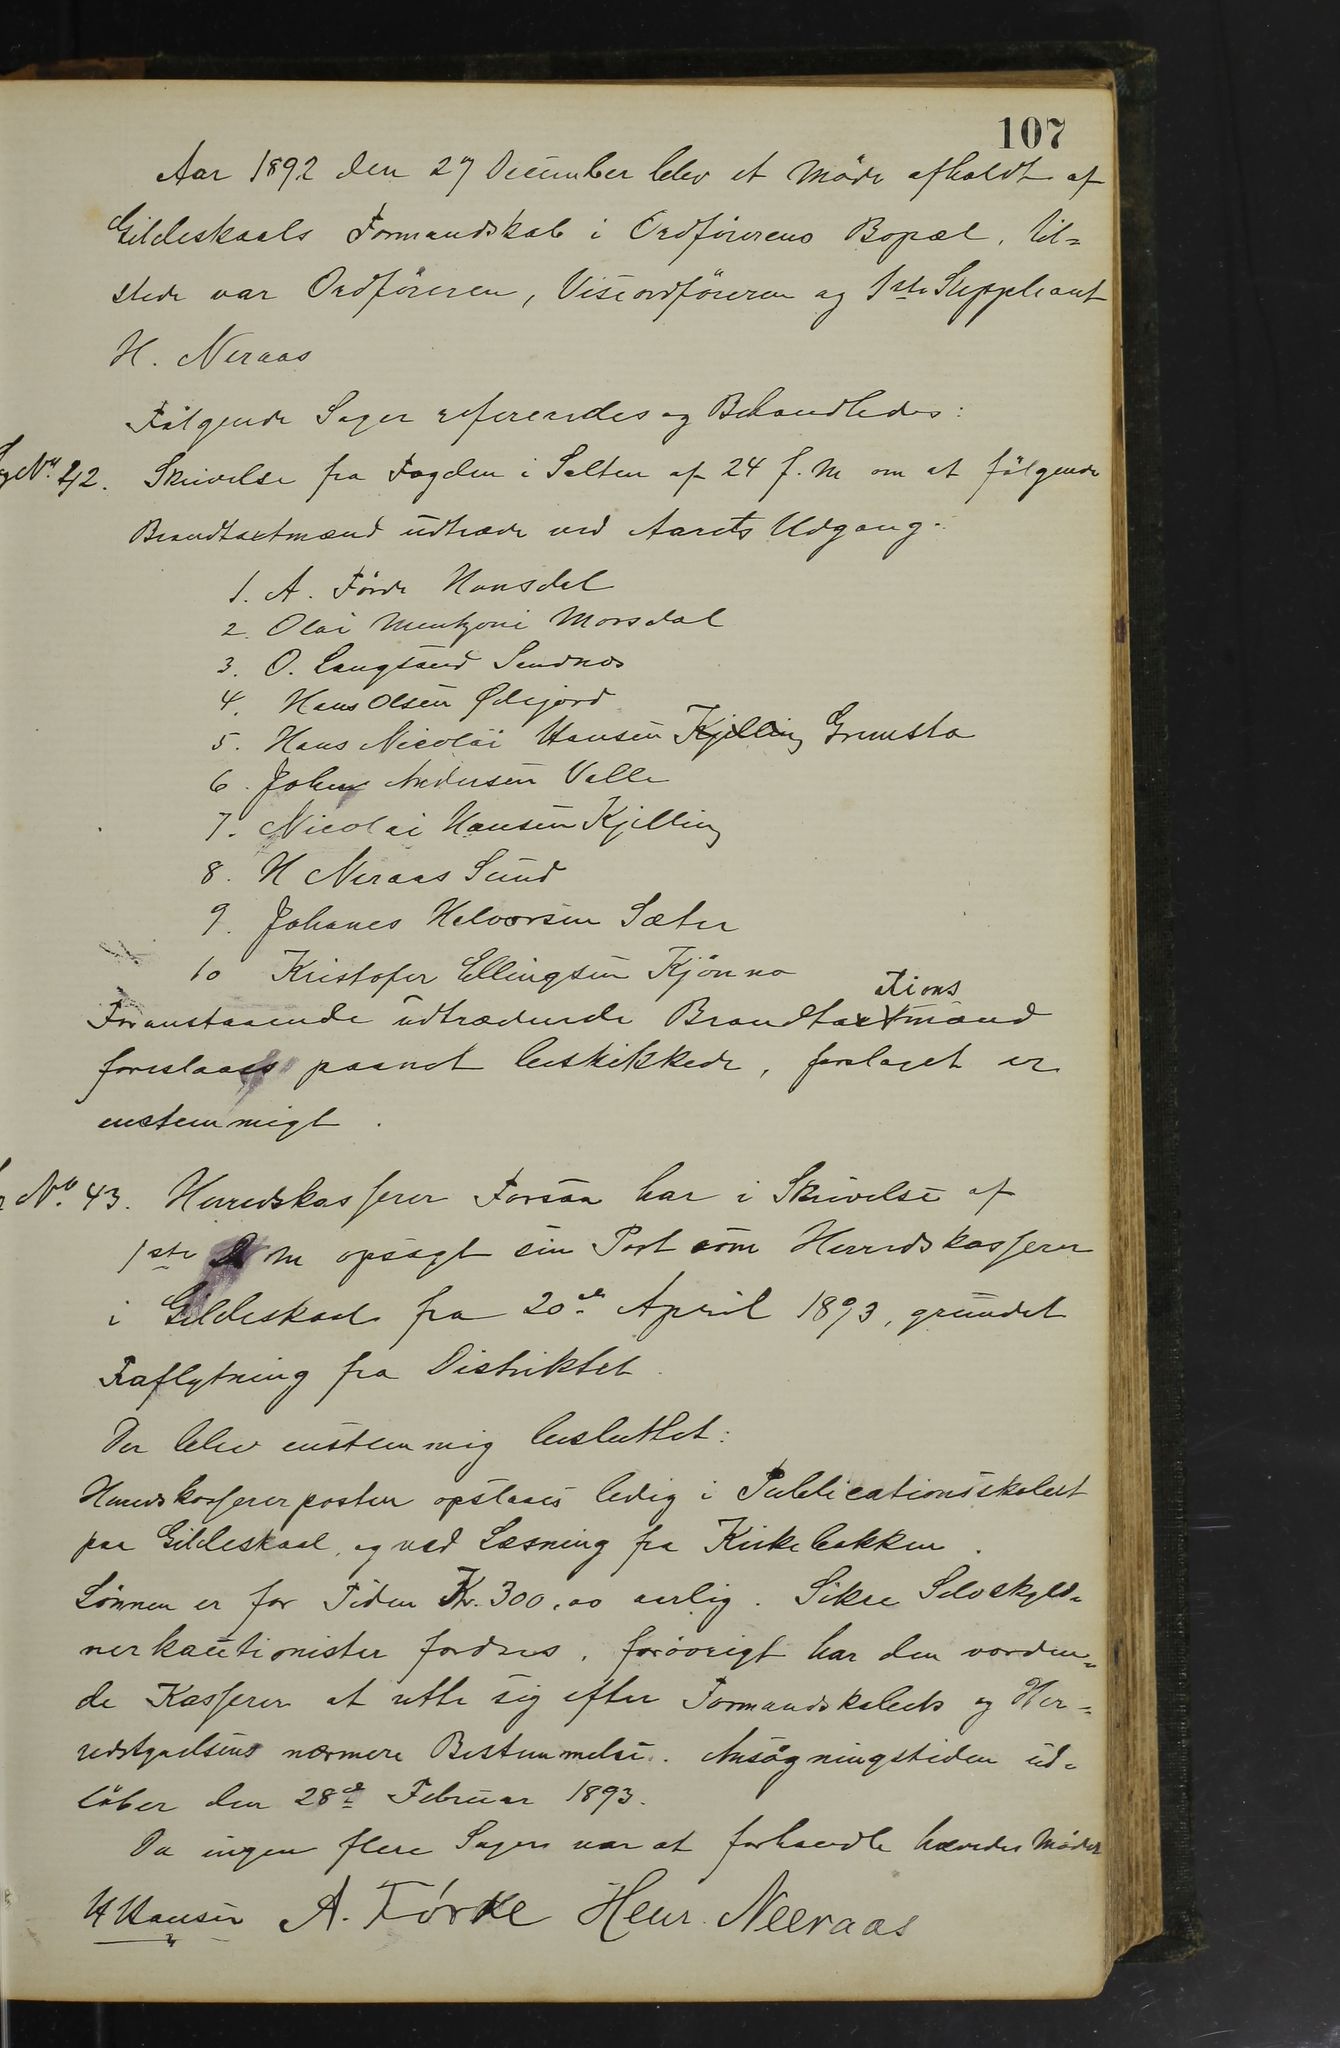 107
Aar 1892 den 27 December blev et Møde afholdt af
Gildeskaals Formandskab i Ordførerens Bopæl. Til=
stede var Ordføreren, Viseordføreren og 1ste Suppleant
H. Neraas
Følgende Sager refereredes og Behandledes:
Sag No. 42. Skrivelse fra Fogden i Salten af 24 f. M om at følgende
Brandtaxtmænd udtræde ved Aarets Udgang:
1. A. Førde Honsdal
2. Olai Mentzoni Morsdal
3. O. Langsand Sandnes
4. Hans Olsen Ødejord
5. Hans Nicolai Hansen Kjelling Grimsta
6. Johan Andersen Valle
7. Nicolai Hansen Kjelling
8. H Neraas Sund
9. Johanes Halvorsen Sæter
10 Kristofer Ellingsen Kjønna
ations
Foranstaaende udtrædende Brandtaxtmænd
foreslaaes paanet beskikkede, forslaget er
enstemmigt.
No. 43. Herredskasserer Forsaa har i Skrivelse af
1ste D M opsagt sin Post som Herredskasserer
i Gildeskaal fra 20de April 1893, grundet
Fraflytning fra Distriktet.
Der blev enstemmig besluttet:
Herredskassererposten opslaaes ledig i Publicationsskabet
paa Gildeskaal, og ved Læsning fra Kirkebakken.
Lønnen er for Tiden Kr. 300,00 aarlig. Sikre Selvskyld=
nerkautionister fordres, forøvrigt har den vorden=
de Kasserer at rette sig efter Formandskabets og Her=
redstyrelsens nærmere Bestemmelse. Ansøgningstiden ud=
løber den 28de Februar 1893.
Da ingen flere Sager var at forhandle hævedes Mødet
H Hansen A. Førde Henr. Neeraas